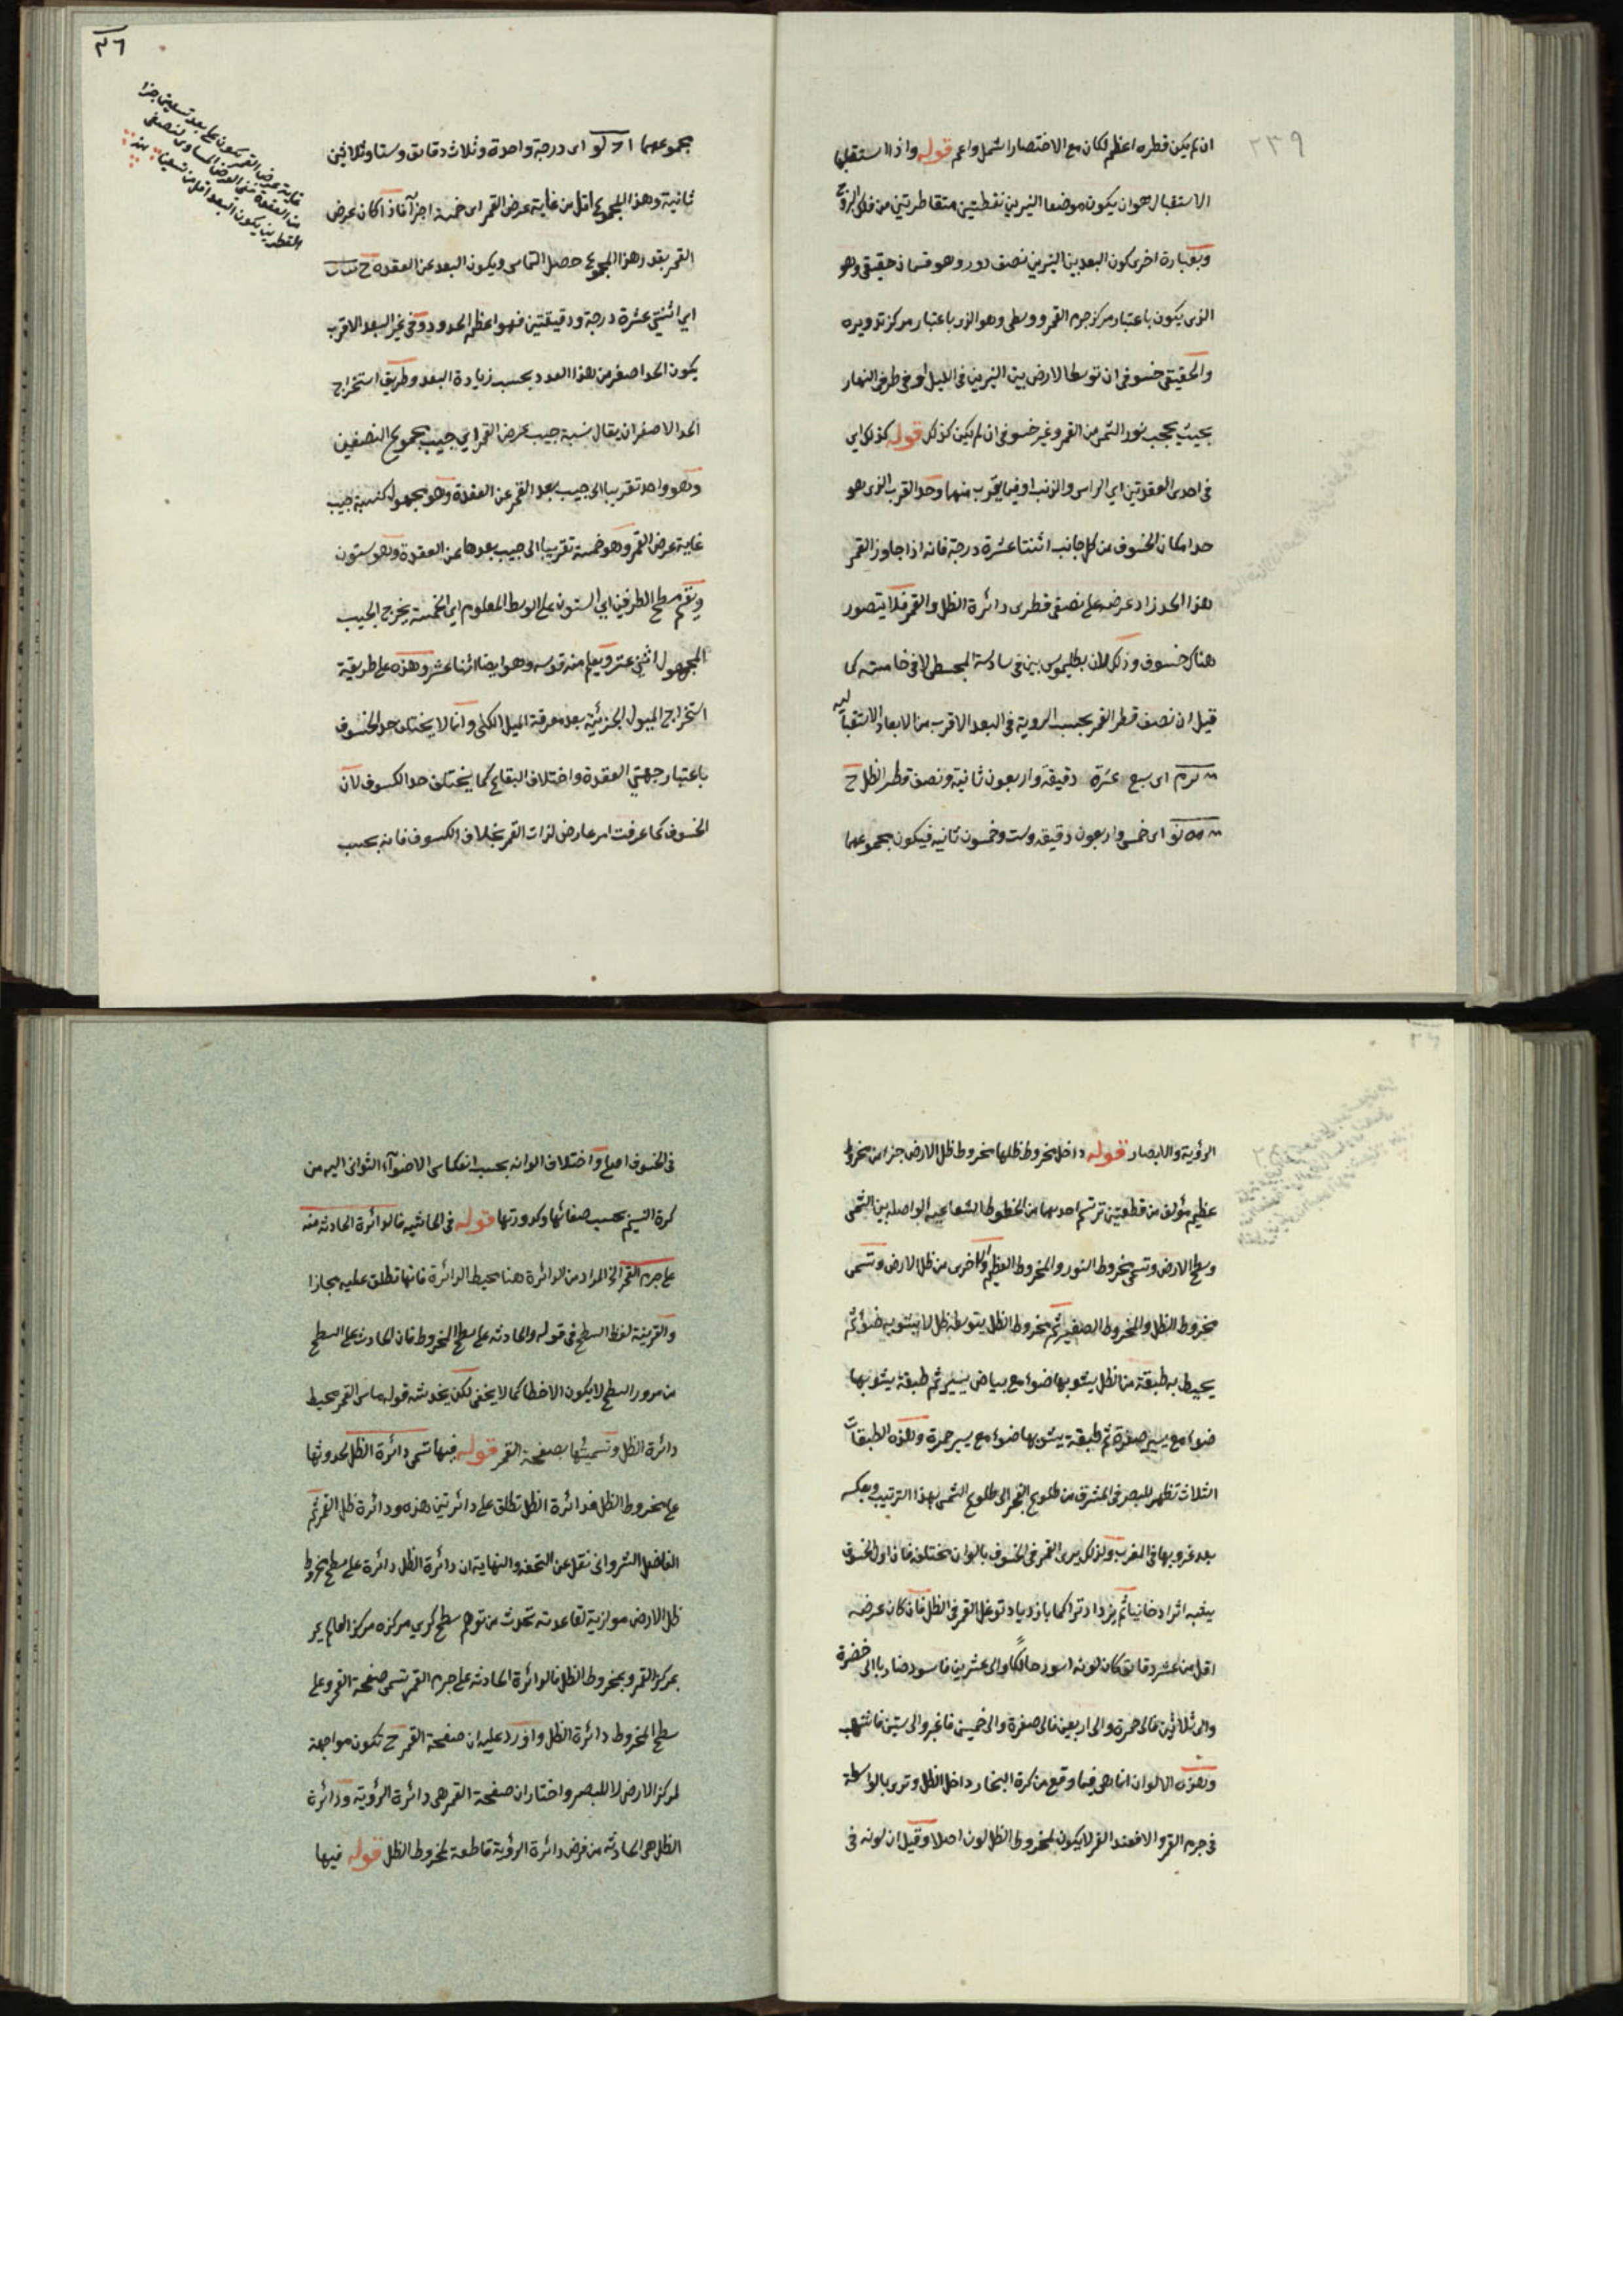 ٢٣٩
ان لم يكن قطره اعظم لكان مع الاختصار اشمل واعم قوله واذا استقبلها
الاستقبال هو ان يكون موضعا النيرين نقطتين متقاطرتين من فلك البروج
وبعبارة اخرى كون البعد بين النيرين نصف دور وهو قسمان حقيقى وهو
الذى يكون باعتبار مركز جرم القمر ووسطى وهو الذى باعتبار مركز تدويره
والحقيقى خسوفى ان توسط الارض بين النيرين فى الليل او فى طرفى النهار
بحيث يحجب نور الشمس من القمر وغير خسوفى ان لم يكن كذلك قوله كذلك اى
فى احدى العقدتين اى الراس والذنب او فيما يقرب منهما وحد القرب الذى هو
حد امكان الخسوف من كل جانب اثنتا عشرة درجة فانه اذا جاوز القمر
هذا الحد زاد عرضه على نصفى قطرى دائرة الظل والقمر فلا يتصور
هناك خسوف وذلك لان بطليموس بين فى سادسة المجسطى لا فى خامسته كما
قيل ان نصف قطر القمر بحسب الروية فى البعد الاقرب من الابعاد الاستقبالية
اى سبع عشرة دقيقة واربعون ثانية ونصف قطر الظل ح
اى خمس واربعون دقيقة وست وخمسون ثانية فيكون مجموعهما
٣٦
مجموعهما ا ح لو اى درجة واحدة وثلاث دقائق وستا وثلاثين
ثانية وهذا المجموع اقل من غاية عرض القمر اى خمسة اجزآء فاذا كان عرض
القمر بقدر هذا المجموع حصل التماس ويكون البعد عن العقدة ح
اى اثنتى عشرة درجة ودقيقتين فهو اعظم الحدود وفى غير البعد الاقرب
يكون الحد اصغر من هذا العدد بحسب زيادة البعد وطريق استخراج
الحد الاصغر ان يقال نسبة جيب عرض القمر اى جيب مجموع النصفين
وهو واحد تقريبا الى جيب بعد القمر عن العقدة وهو مجهول كنسبة جيب
غاية عرض القمر وهو خمسة تقريبا الى جيب بعدها عن العقدة وهو ستون
ويقسم مسطح الطرفين اى الستون على الوسط المعلوم اى الخمسة يخرج الجيب
المجهول اثنى عشر ويعلم منه قوسه وهو ايضا اثنا عشر وهذه على طريقة
استخراج الميول الجزئية بعد معرفة الميل الكلى وانما لا يختلف حد الخسوف
باعتبار جهتى العقدة واختلاف البقاع كما يختلف حد الكسوف لان
الخسوف كما عرفت امر عارض لذات القمر بخلاف الكسوف فانه بحسب
غاية عرض القمر يكون على بعد تسعين جزءا
من العقدة ففى العرض المساوى لنصفى
القطرين يكون البعد اقل من تسعين منه
الرؤية والابصار قوله داخل مخروط ظلها مخروط ظل الارض جزء من مخروط
عظيم مؤلف من قطعتين ترتسم احديهما من الخطوط الشعاعية الواصلة بين الشمس
وسطح الارض وتسمى مخروط النور والمخروط العظيم والاخرى من ظل الارض وتسمى
مخروط الظل والمخروط الصغير ثم مخروط الظل يتوسطه ظل لا يشوبه ضوء ثم
يحيط به طبقة من الظل يشوبها ضوء مع بياض يسير ثم طبقة يشوبها
ضوء مع يسير صفرة ثم طبقة يشوبها ضوء مع يسير حمرة وهذه الطبقات
الثلاث تظهر للبصر فى المشرق من طلوع الفجر الى طلوع الشمس بهذا الترتيب وبعكسه
بعد غروبها فى المغرب ولذلك يرى القمر فى الخسوف بالوان مختلفة فاذا اول الخسوف
يشبه اثرا دخانيا ثم يزداد تراكما بازدياد توغل القمر فى الظل فان كان عرضه
اقل من عشر دقائق كان لونه اسود حالكا والى عشرين فاسود ضاربا الى خضرة
والى ثلاثين فالى حمرة والى اربعين فالى صفرة والى خمسين فاغبر والى ستين فاشهب
وهذه الالوان انما هى فيما وقع من كرة البخار داخل الظل وترى بالواسطة
فى جرم القمر والا فعند القمر لا يكون لمخروط الظل لون اصلا وقيل ان لونه فى
فى الخسوف اصلى واختلاف الوانه بحسب انعكاس الاضوآء الثوانى اليه من
كرة النسيم بحسب صفائها وكدورتها قوله فى الحاشيه فالدائرة الحادثة منه
على جرم القمر الخ المراد من الدائرة هنا محيط الدائرة فانها تطلق عليه مجازا
والقرينة لفظ السطح فى قوله والحادثة على سطح المخروط فان الحادث على السطح
من مرور السطح لا يكون الا خطا كما لا يخفى لكن يخدشه قوله ماس القمر محيط
دائرة الظل وتسميتها بصفحة القمر قوله فيها تسمى دائرة الظل لحدوثها
على مخروط الظل فدائرة الظل تطلق على دائرتين هذه ودائرة ظل القمر ثم
الفاضل الشروانى نقل عن التحفه والنهاية ان دائرة الظل دائرة على سطح مخروط
ظل الارض موازية لقاعدته تحدث من توهم سطح كرى مركزه مركز العالم يمر
بمركز القمر وبمخروط الظل فالدائرة الحادثة على جرم القمر تسمى صفحة القمر وعلى
سطح المخروط دائرة الظل واورد عليه ان صفحة القمر ح تكون مواجهة
لمركز الارض لا للبصر واختار ان صفحة القمر هى دائرة الرؤية ودائرة
الظل هى الحادثة من فرض دائرة الرؤية قاطعة لمخروط الظل قوله فيها